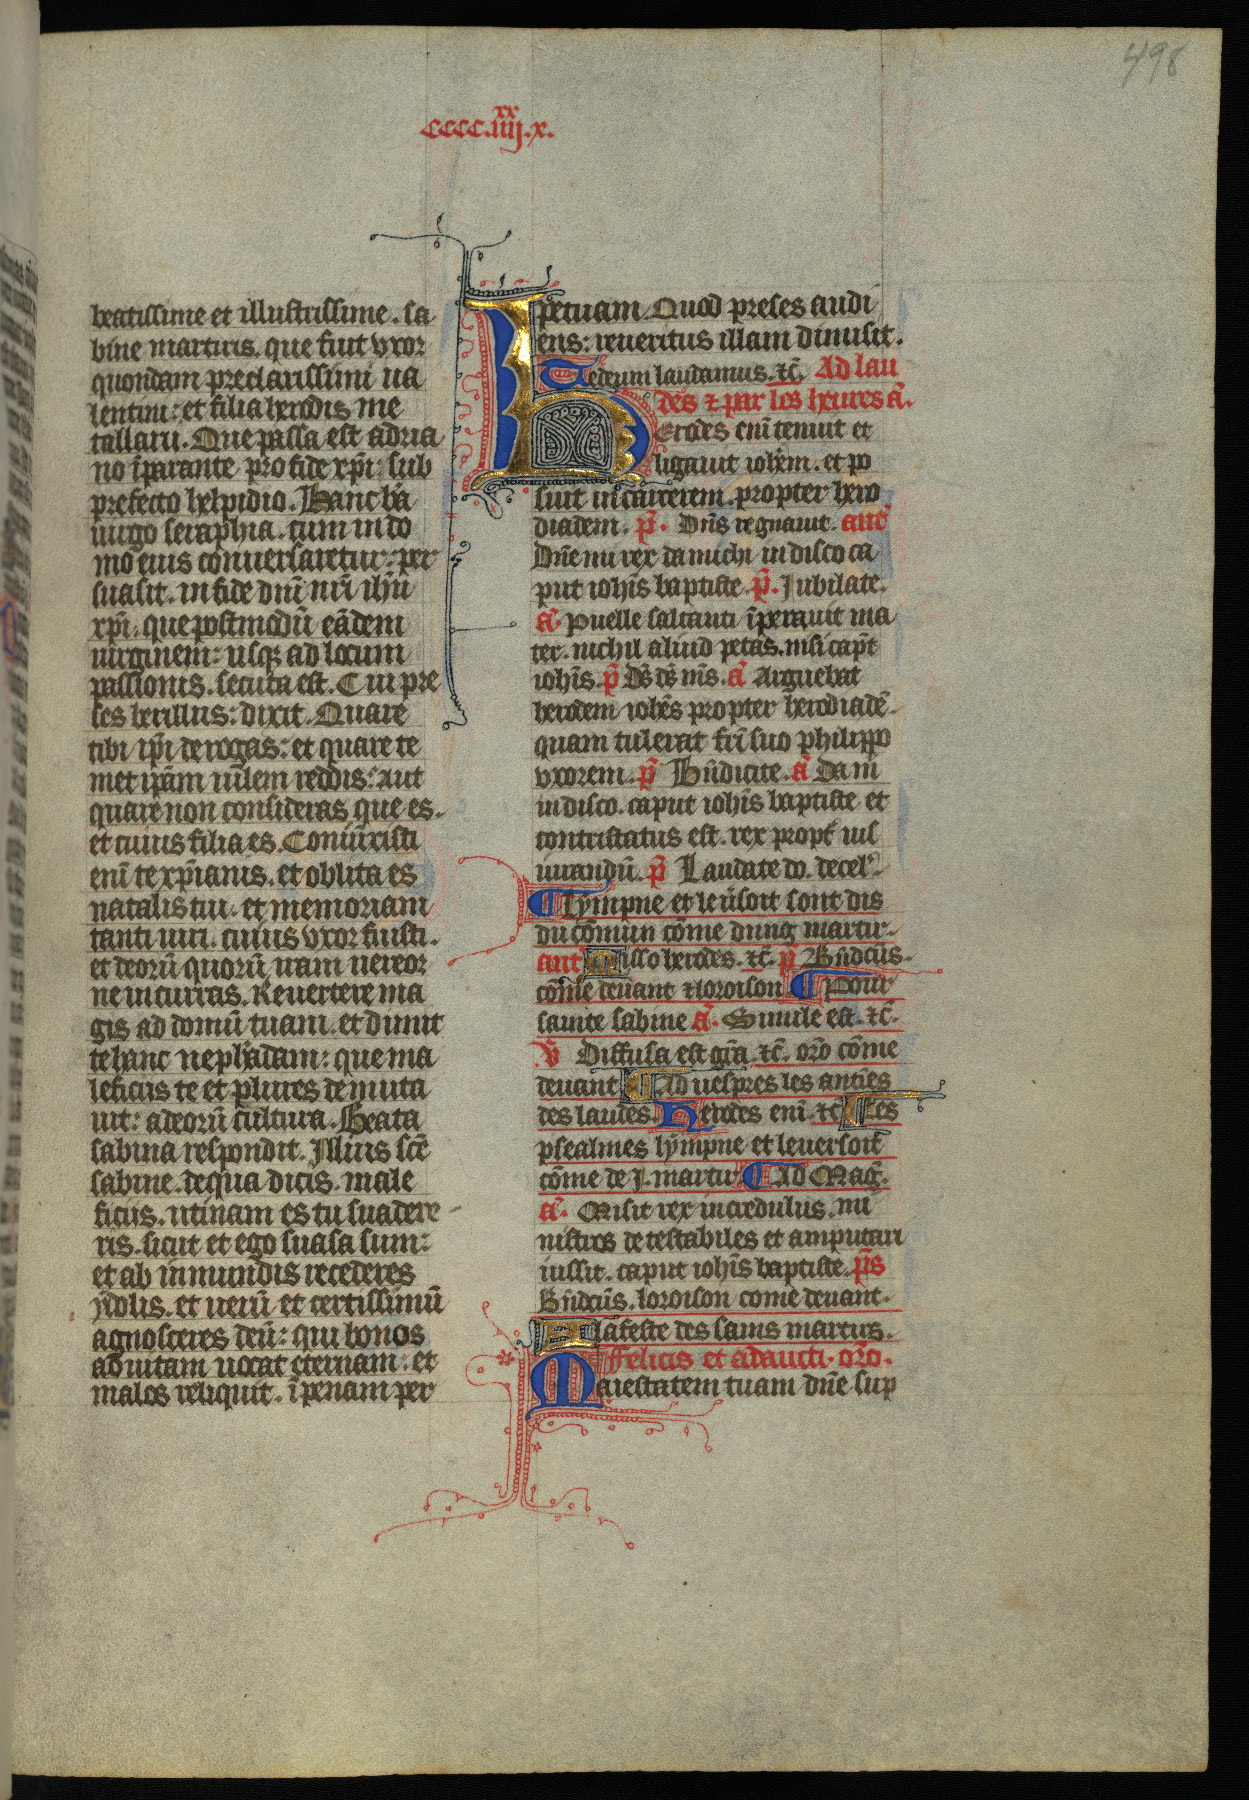 498
cccc.iiij.x.
xx
beatissime et illustrissime. sa
bine martiris. que fuit vxor
quondam preclarissimi ua
lentini: et filia herodis me
tallarii. Que passa est adria
no īparante pro fide xpī: sub
prefecto helpidio. Hanc bā
uirgo seraphia. cum in do
mo eius conuersaretur: per
suasit. in fide dnī nrī ihū
xpī. que postmodū eādem
uirginem: usqȝ ad locum
passionis. secuta est. Cui pre
ses berillus: dixit. Quare
tibi ipī derogas: et quare te
met ipām uilem reddis: Aut
quare non consideras que es.
et cuius filia es. Coniūxisti
enī te xpīanis. et oblita es
natalis tui. et memoriam
tanti uiri. cuius vxor fuisti.
et deorū quorū iram uereor
ne incurras. Reuertere ma
gis ad domū tuam. et dimit
te hanc neph̄adam: que ma
leficiis te et plures demuta
uit: a deorū cultura. Beata
sabina respondit. Illius scē
sabine. de qua dicis. male
ficiis. utinam es tu suadere
ris. sicut et ego suasa sum:
et ab inmundis recederes
ydolis. et uerū et certissimū
agnosceres deū: qui bonos
ad uitam uocat eternam: et
malos reliquit. ī penam per
petuam. Quod preses audi
ens: reueritus illam dimisit.
Te deum laudamus. ⁊c̄. Ad lau
des ⁊ par les heures ā.
Herodes enī tenuit et
ligauit ioh̄em. et po
suit in carcerem. propter hero
diadem. p̄. Dn̄s regnauit. ant̄
Dn̄e mi rex da michi in disco ca
put ioh̄is baptiste. p̄. Iubilate.
ā. Puelle saltanti īperauit ma
ter. nichil aliud petas. nisi cap̄t
ioh̄is. p̄ Ds̄ ds̄ ms̄. ā Arguebat
herodem ioh̄es propter herodiadē.
quam tulerat frī suo philippo
vxorem. p̄ Bn̄dicite. ā Da m
in disco. caput ioh̄is baptiste et
contristatus est. rex propt̄ ius
iurandū. p̄ Laudate do. de cel̄.
Lympne et le ūsoit sont dis
du cōmun cōme dung martir.
ant̄ Misso herodes. ⁊c̄. p̄ Bn̄dcūs.
cōme deuant ⁊ loroison Pour
sainte sabine ā. Simile est. ⁊c̄.
v̄ Diffusa est grā. ⁊c̄. orō cōme
deuant Ad uespres les antēs
des laudes. Herodes enī. ⁊c̄ Les
psealmes lympne et le uersoit
cōme de .i. martir Ad Maḡ.
ā. Misit rex incredulus. mi
nistros detestabiles et amputari
iussit. caput ioh̄is baptiste. p̄s
Bn̄dcūs. loroison come deuant.
A la feste des sains martirs.
Felicis et adaucti. orō.
Maiestatem tuam dn̄e sup